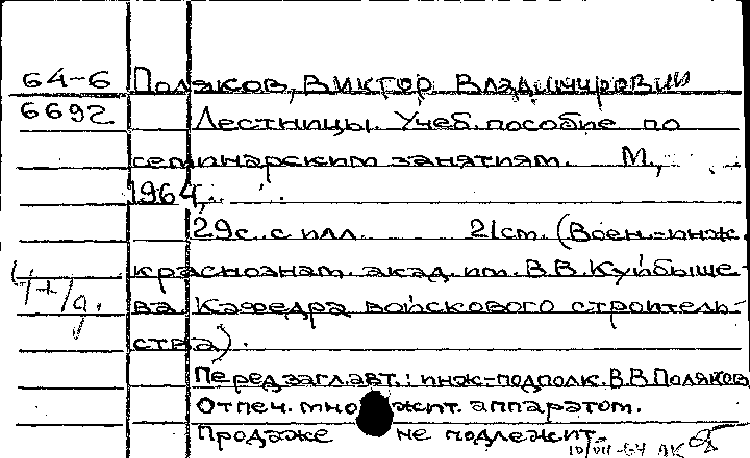 64-6 Поляков, Виктор Владимирович
6692 Лестницы. Учеб. пособие по
семинарским занятиям. М.,
1964.
29с. с илл. 21см. (Воен.-инж.
краснознам. акад. им. В.В. Куйбыше-
ва. Кафедра войскового строитель-
ства).
Перед загл. авт.: инж-подполк. В.В. Поляков
Отпеч. множит. аппаратом.
Продаже не подлежит.